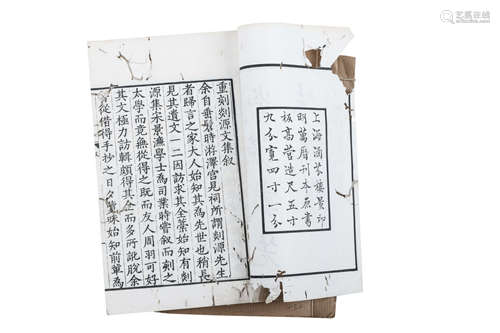 上海涵芬樓景印
明萬曆刊本原書
板高營造尺五寸
九分寬四寸一分
重刻剡源文集叙
余自垂髫時游澤宮見祠所謂剡源先生
者歸言之家大人始知其為先世也稍長
見其遺文一二因訪求其全藁始知有剡
源集宋景濂學士為司業時嘗叙而刻之
太學而竟無從得之既而友人周羽可好
其文極力訪輯頗得其全而多所訛脫余
從借得手抄之日久
始知前輩為